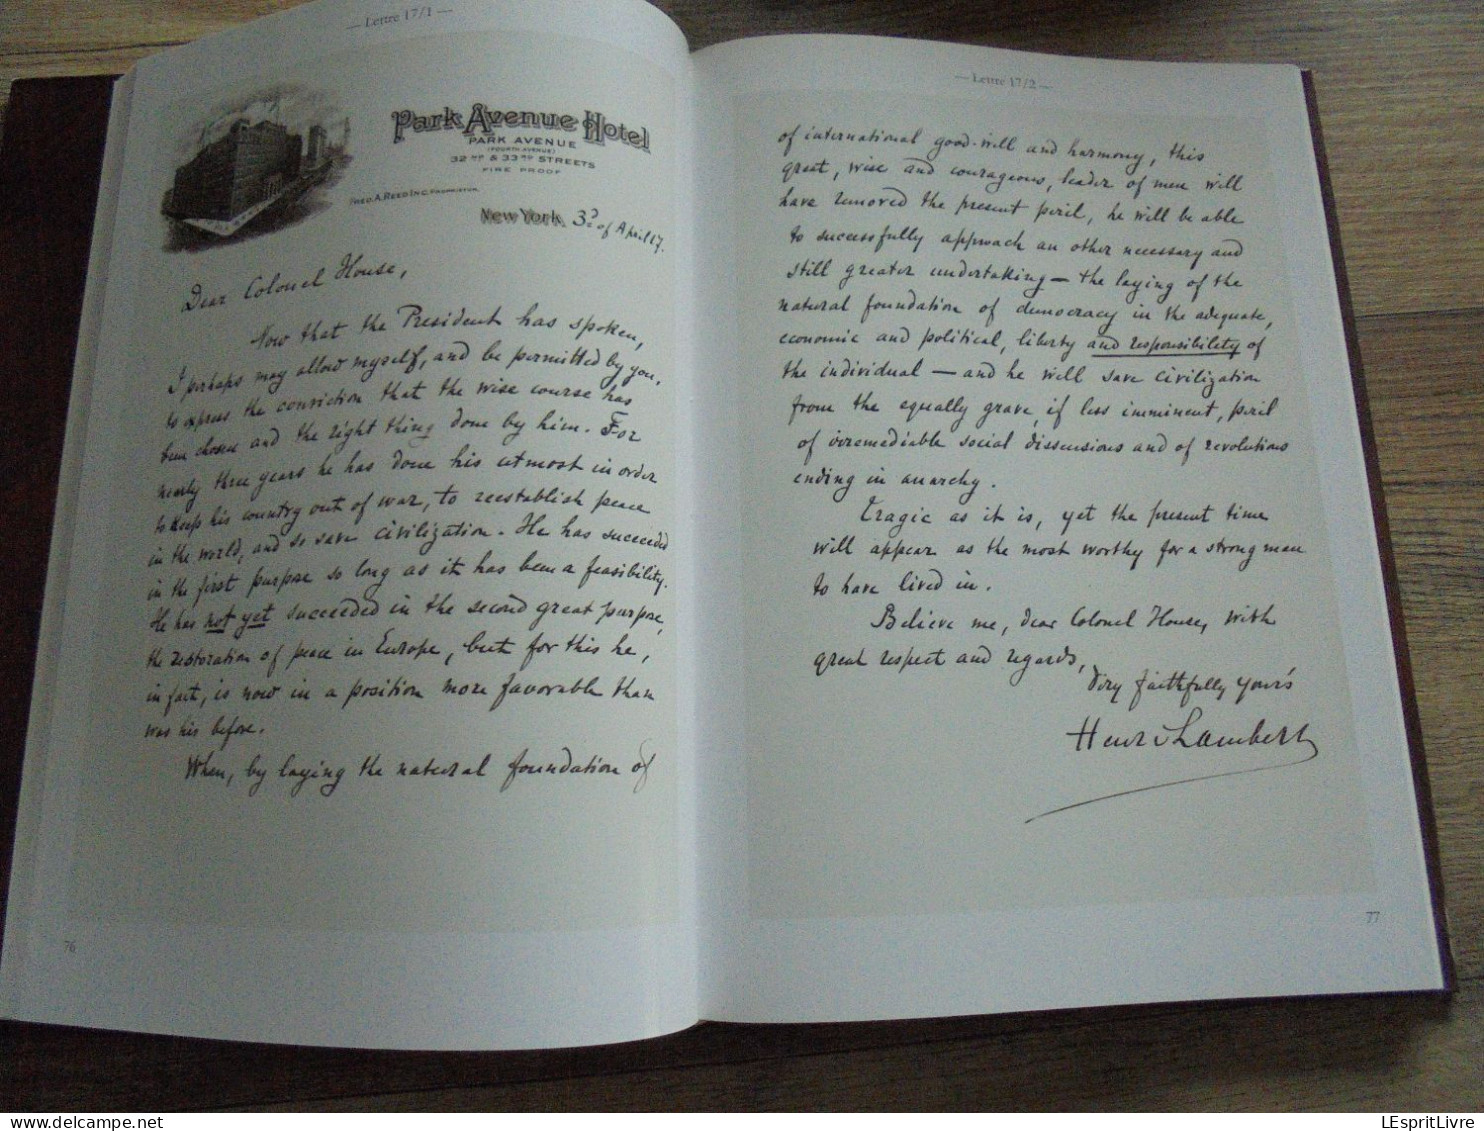 — Lettre 17/1 —
Park Avenue Hotel
PARK AVENUE
(FOURTH AVENUE)
32ND & 33RD STREETS
FIRE PROOF
FRED. A. REED INC. PROPRIETOR.
New York, 3d of April 17.
Dear Colonel House,
Now that the President has spoken,
I perhaps may allow myself, and be permitted by you,
to express the conviction that the wise course has
been chosen and the right thing done by him. For
nearly three years he has done his utmost in order
to keep his country out of war, to reestablish peace
in the world, and so save civilization. He has succeeded
in the first purpose so long as it has been a feasibility.
He has not yet succeeded in the second great purpose,
the restoration of peace in Europe, but for this he,
in fact, is now in a position more favorable than
was his before.
When, by laying the natural foundation of
76
— Lettre 17/2 —
of international good-will and harmony, this
great, wise and courageous, leader of men will
have removed the present peril, he will be able
to successfully approach an other necessary and
still greater undertaking — the laying of the
natural foundation of democracy in the adequate,
economic and political, liberty and responsibility of
the individual — and he will save civilization
from the equally grave, if less imminent, peril
of irremediable social dissensions and of revolutions
ending in anarchy.
Tragic as it is, yet the present time
will appear as the most worthy for a strong man
to have lived in.
Believe me, dear Colonel House, with
great respect and regards,
Very faithfully yours
Henri Lambert
77
LEspritLivre